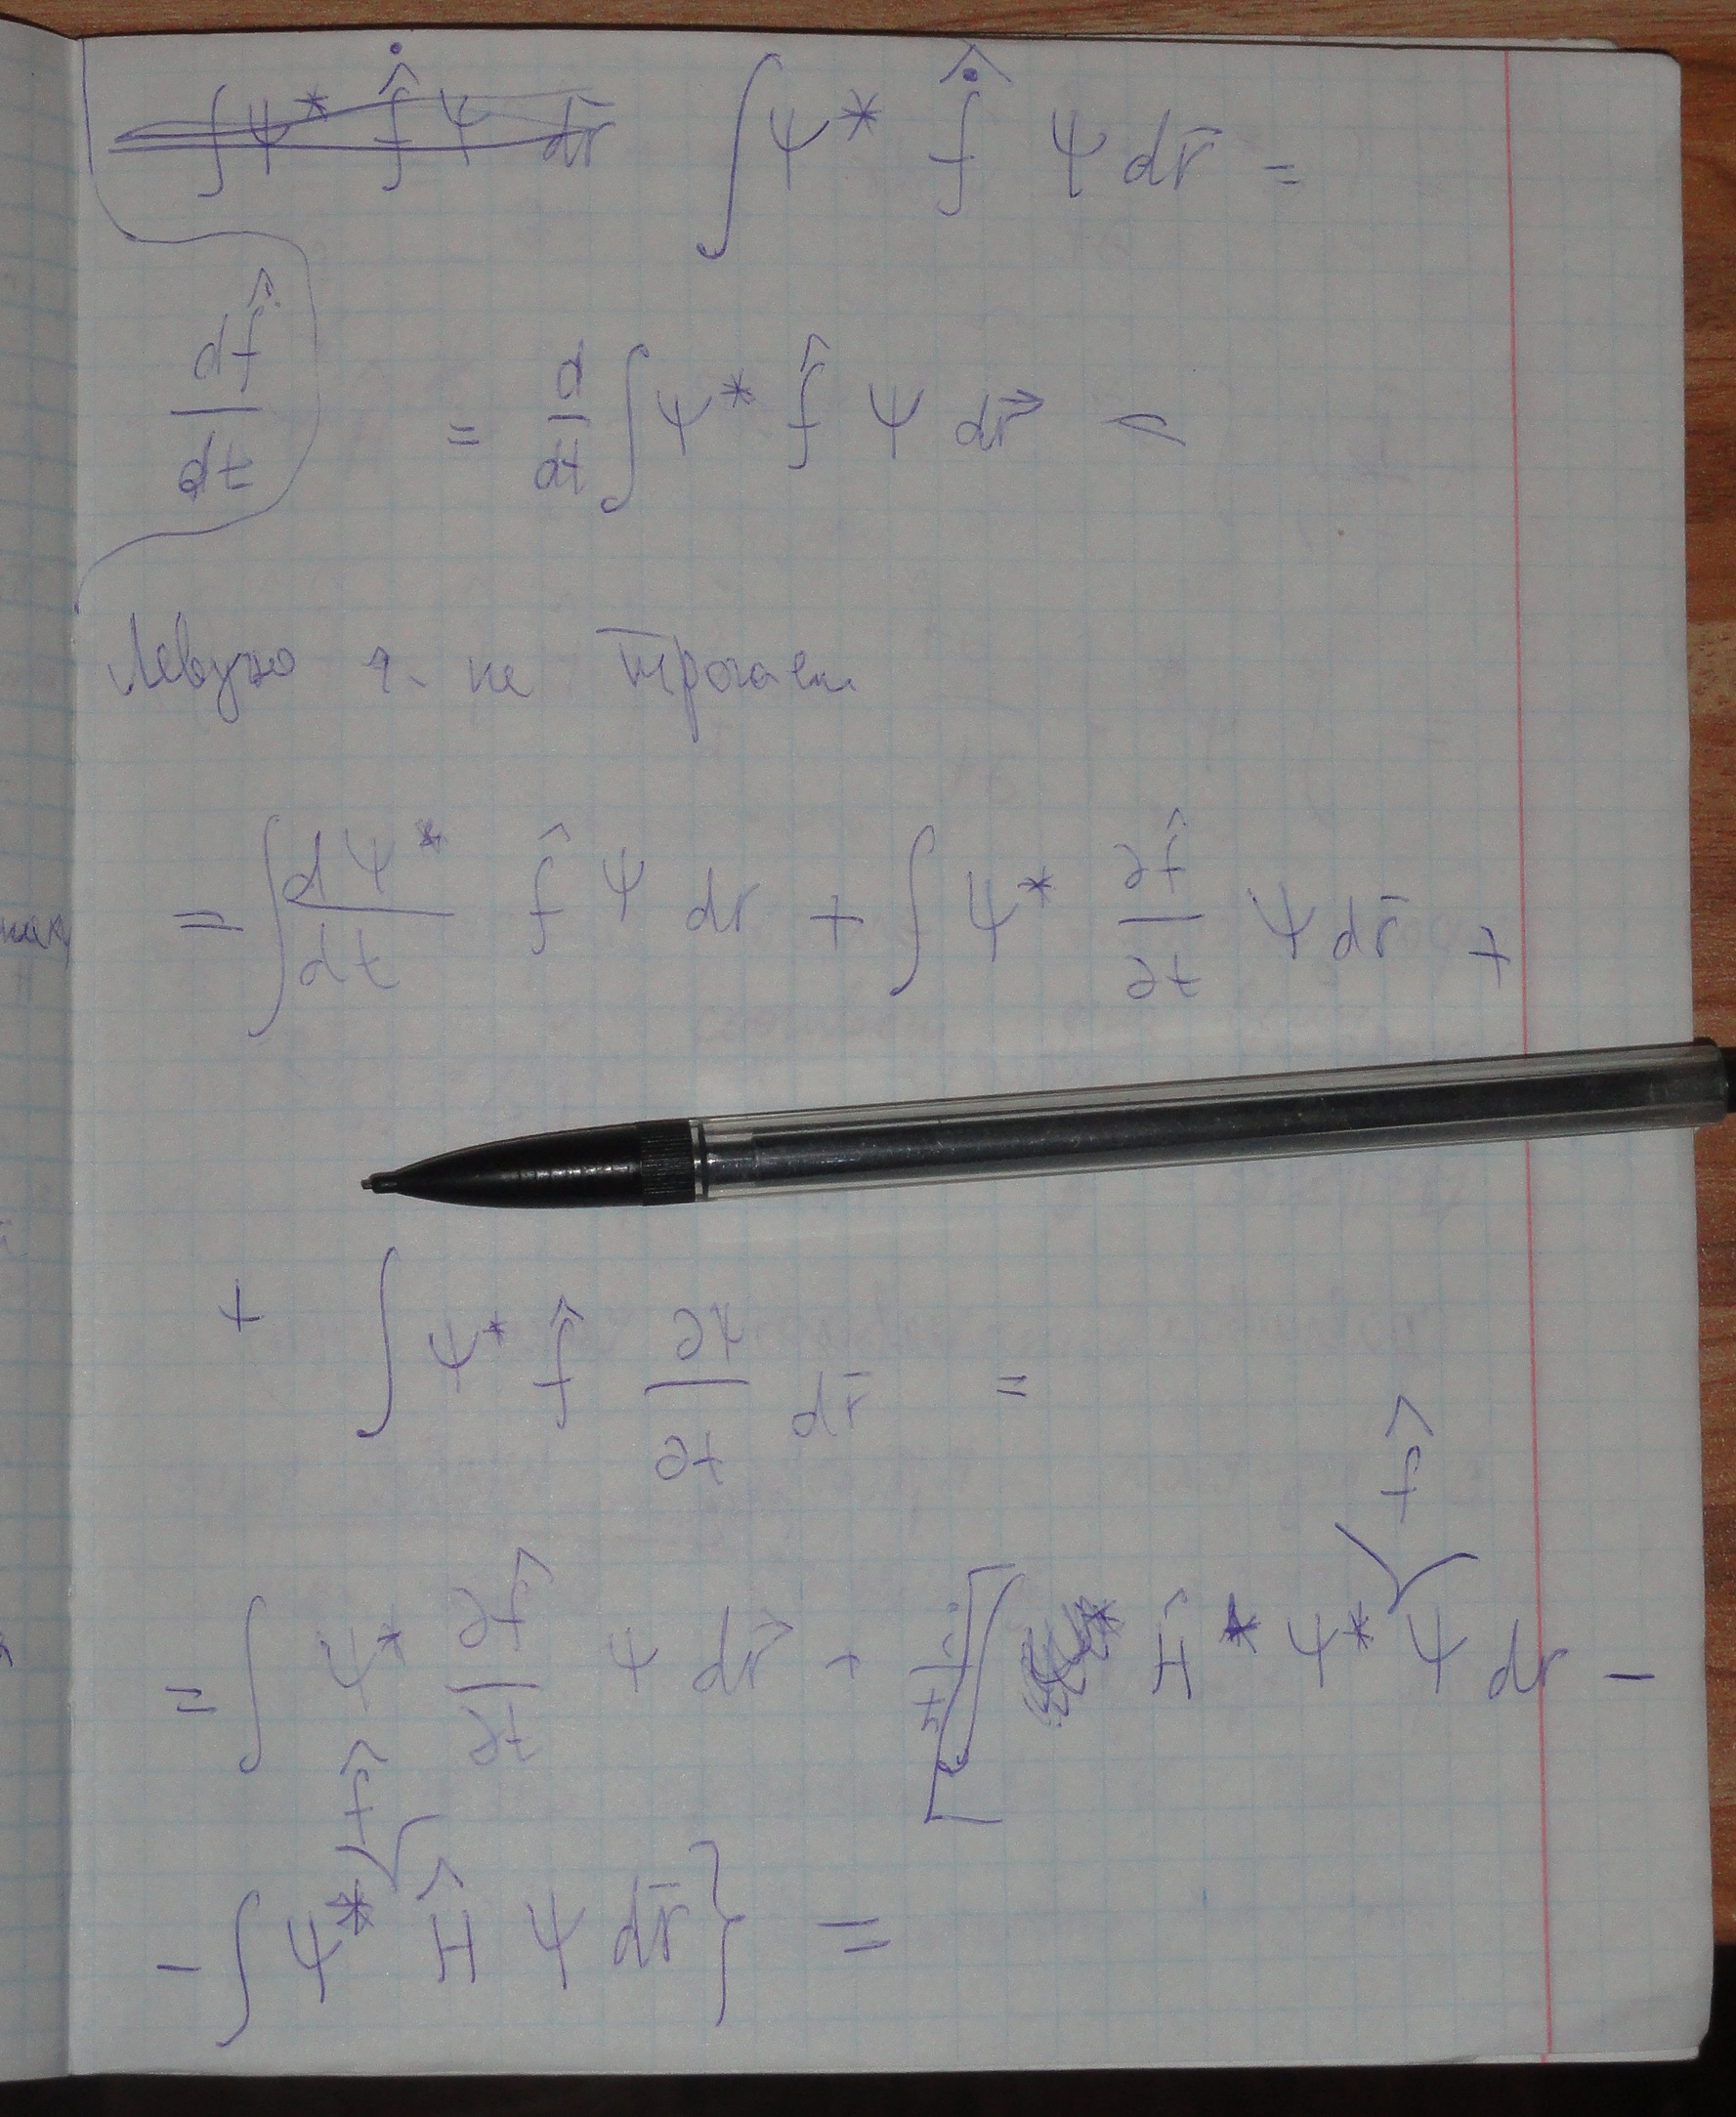 ∫ Ψ* f̂̇ Ψ dr̄ ∫ Ψ* f̂̇ Ψ dr̄ =
df̂/dt = d/dt ∫ Ψ* f̂ Ψ dr⃗ =
Левую ч. не трогаем
= ∫ dΨ*/dt f̂ Ψ dr + ∫ Ψ* ∂f̂/∂t Ψ dr̄ +
+ ∫ Ψ* f̂ ∂Ψ/∂t dr̄ =
= ∫ Ψ* ∂f̂/∂t Ψ dr⃗ + i/ħ [∫ Ĥ* Ψ* f̂ Ψ dr −
− ∫ Ψ* f̂ Ĥ Ψ dr̄} =